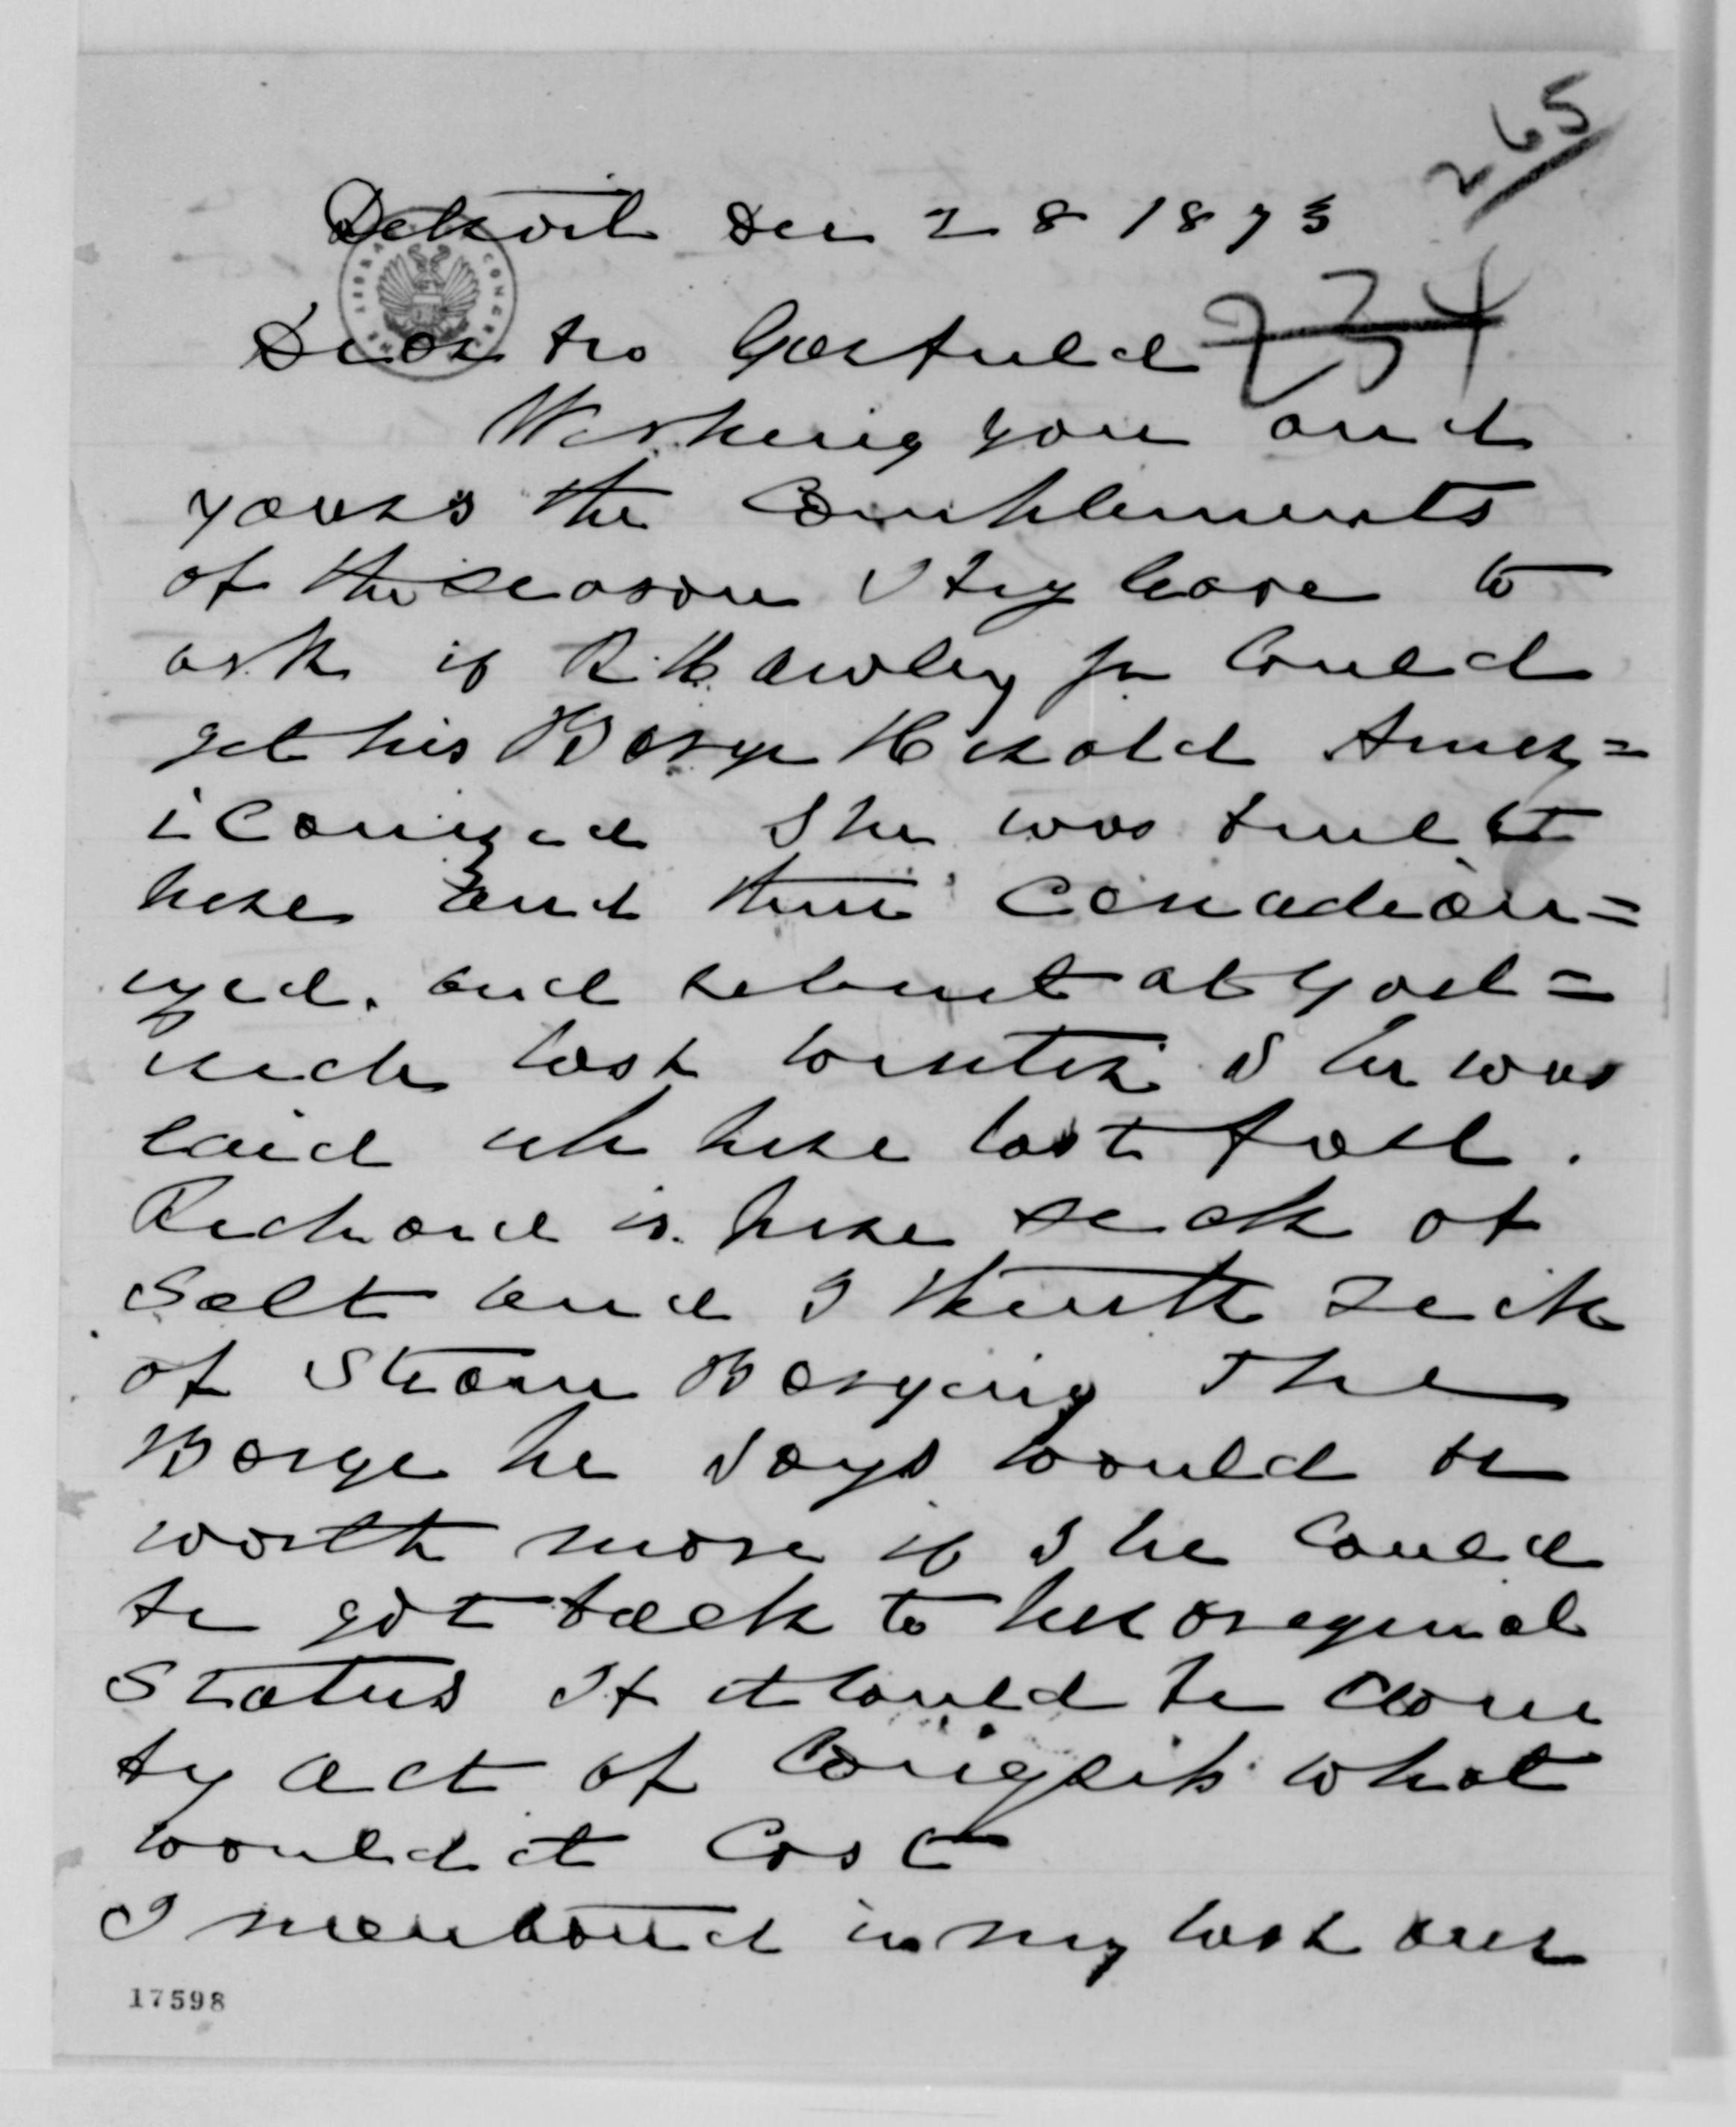 265
Detroit Dec 28 1873
234
Dear Bro Garfield
Wishing you and
yours the Complements
of the season I beg leave to
ask if R. Hawley Jr Could
get his Barge Herald Amer=
icanized She was built
here and then Canadian=
ized. and rebuilt at God=
rich last winter She was
laid up here last fall.
Richard is here sick of
Salt and I think sick
of Steam Barging The
Barge he says would be
worth more if she Could
be got back to her original
status If it Could be done
by act of Congress what
would it Cost
I mentioned in my last our
17598